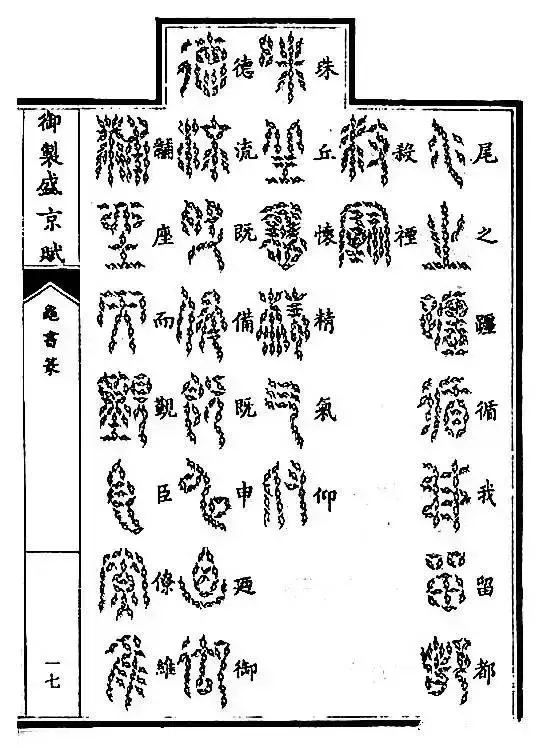 尾之疆循我留都
殺禋
珠丘懷精氣仰
德流既備既申迺御
黼座而覲臣僚維
御製盛京賦
龜書篆
一七